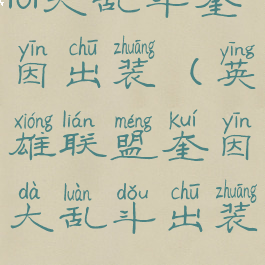 lol大乱斗奎
yīn chū zhuāng yīng
因出装(英
xióng lián méng kuí yīn
雄联盟奎因
dà luàn dǒu chū zhuāng
大乱斗出装